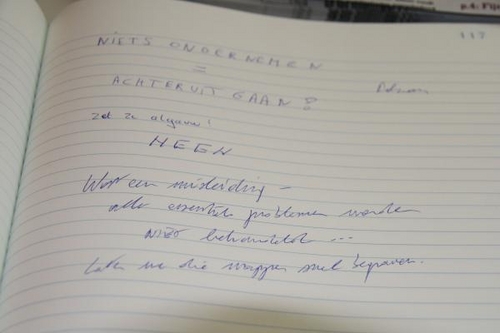 p.4: Fij
117
NIETS ONDERNEMEN
=
ACHTERUIT GAAN?
zet ze
NEEN
Wat een misleiding -
alle essentiële problemen worden
NIET behandeld ...
Laten we die mappen snel begraven.